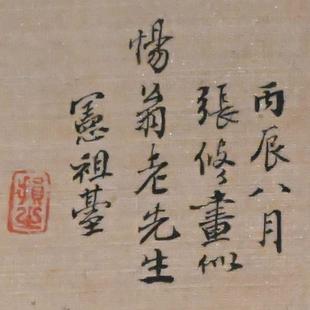 丙辰八月
張修畫似
惕翁老先生
憲祖臺
損之